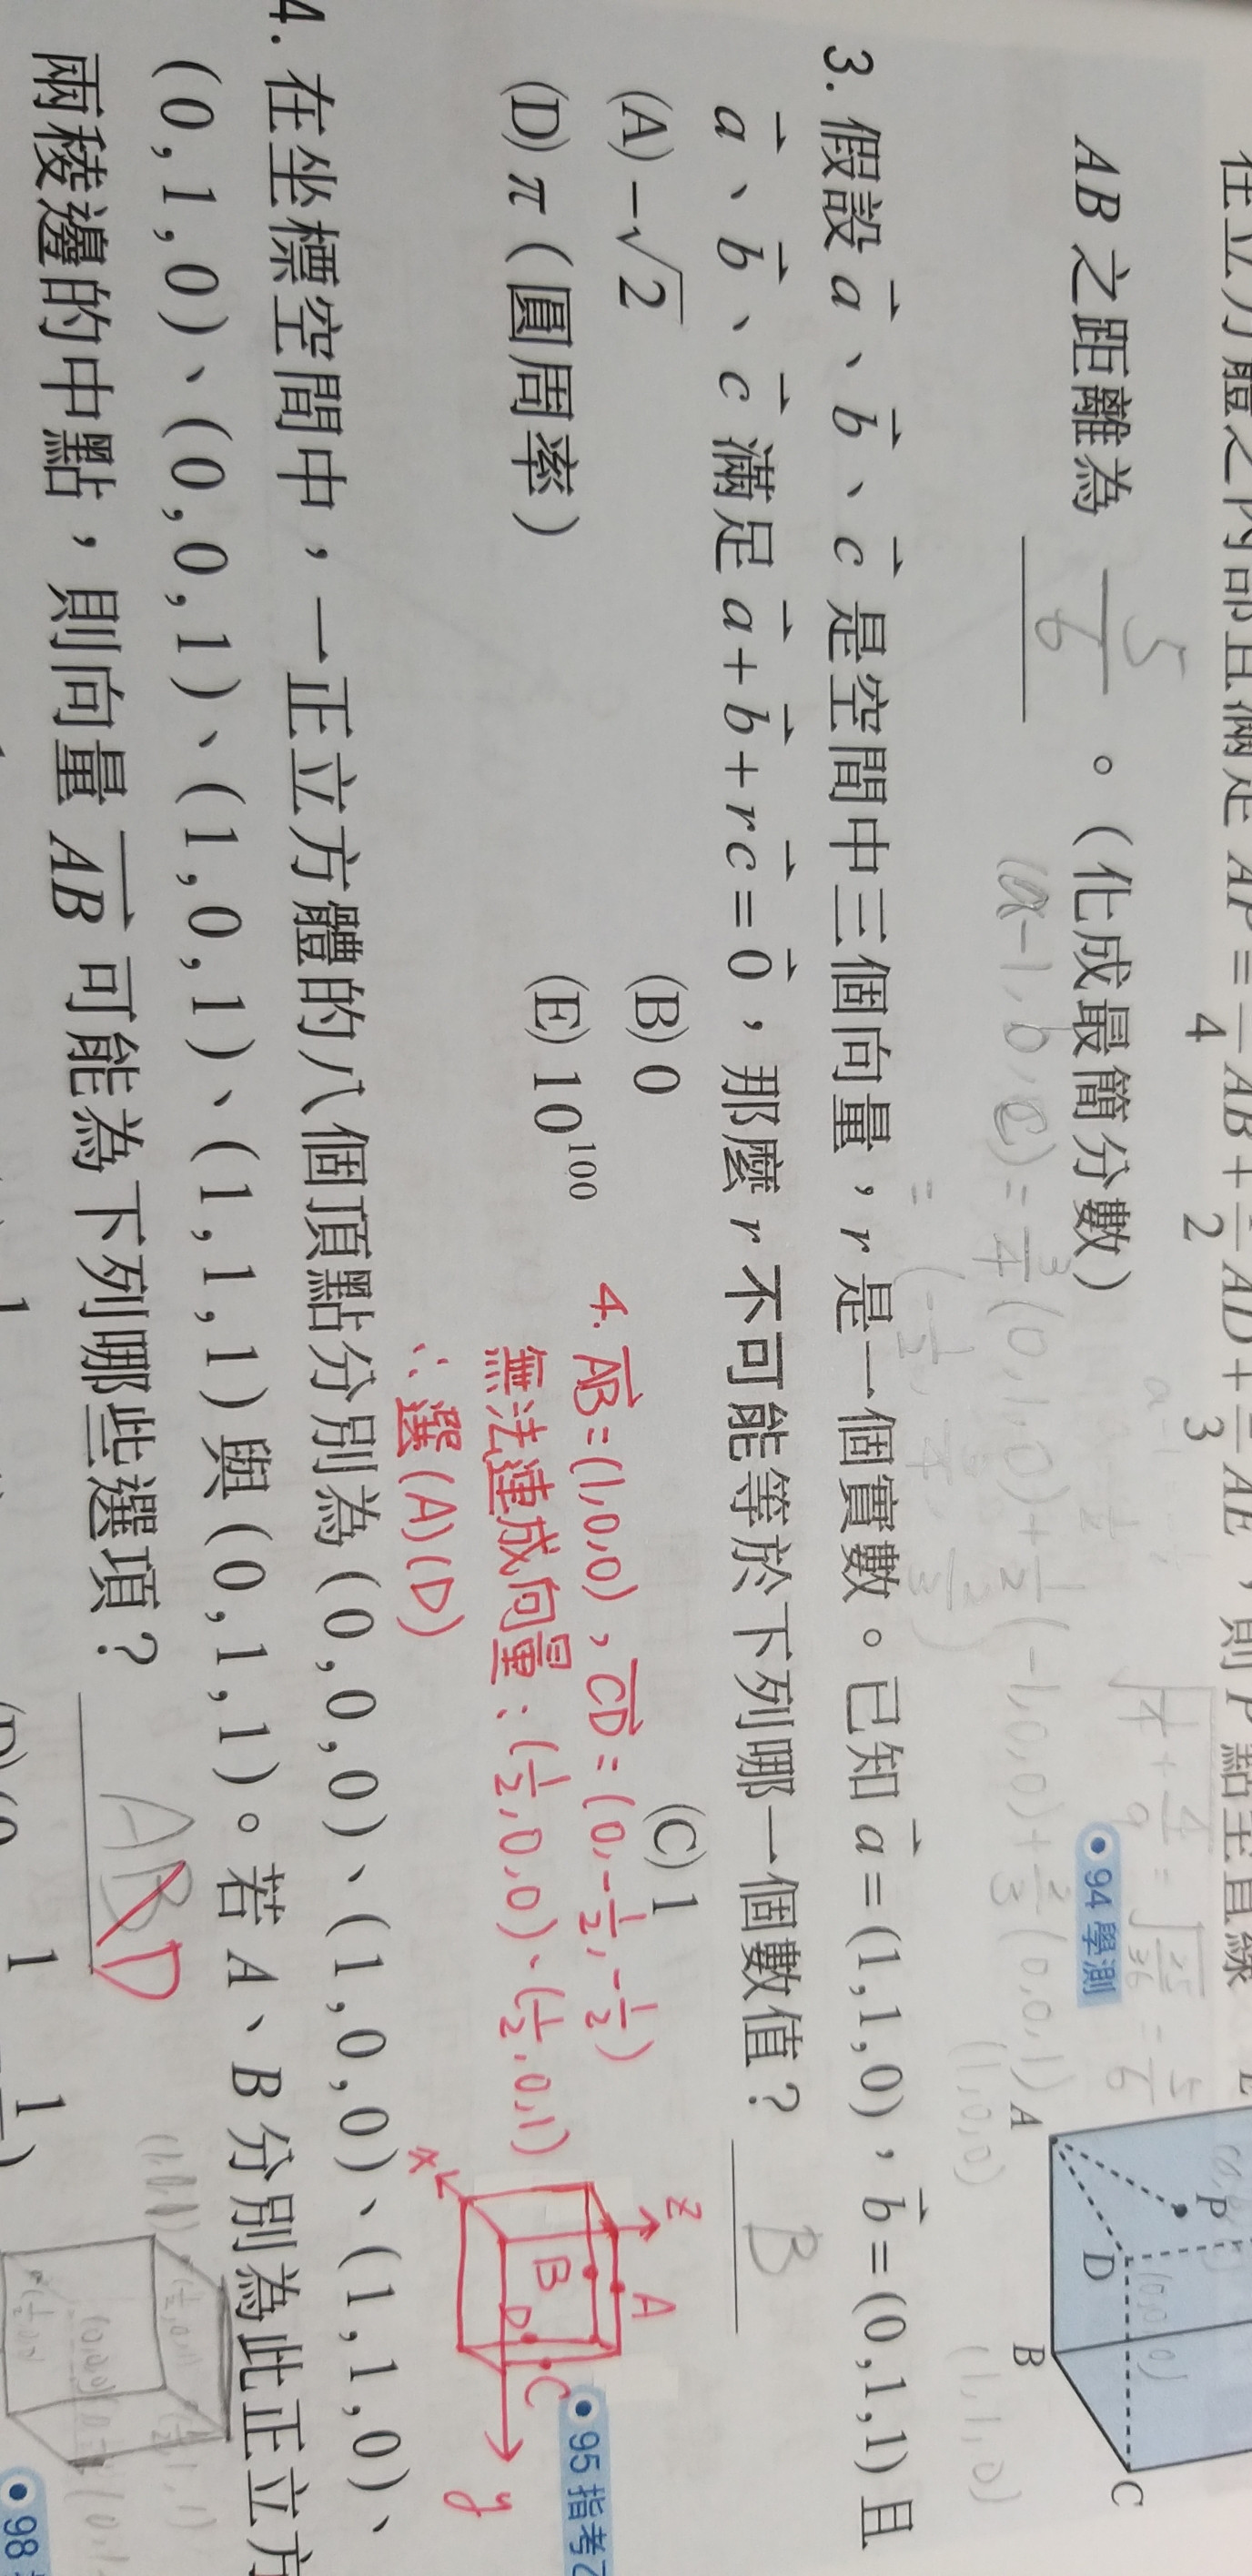 在立方體之內部且滿足 AP = 4 AB + 2 AD + 3 AE，則 P 點至直線
AB 之距離為 5/6 。（化成最簡分數）
94 學測
A
B
C
D
P
3. 假設 a⃗、b⃗、c⃗ 是空間中三個向量，r 是一個實數。已知 a⃗ = (1,1,0)，b⃗ = (0,1,1) 且
a⃗、b⃗、c⃗ 滿足 a⃗ + b⃗ + rc⃗ = 0⃗，那麼 r 不可能等於下列哪一個數值？ B
(A) −√2 (B) 0 (C) 1
(D) π（圓周率） (E) 10¹⁰⁰
95 指考乙
4. AB⃗ = (1,0,0)，CD⃗ = (0,-1/2,-1/2)
無法連成向量：(1/2,0,0)、(1/2,0,1)
∴選(A)(D)
z
x
y
A
B
C
D
4. 在坐標空間中，一正立方體的八個頂點分別為 (0,0,0)、(1,0,0)、(1,1,0)、
(0,1,0)、(0,0,1)、(1,0,1)、(1,1,1) 與 (0,1,1)。若 A、B 分別為此正立方
兩稜邊的中點，則向量 AB⃗ 可能為下列哪些選項？ ABD
98